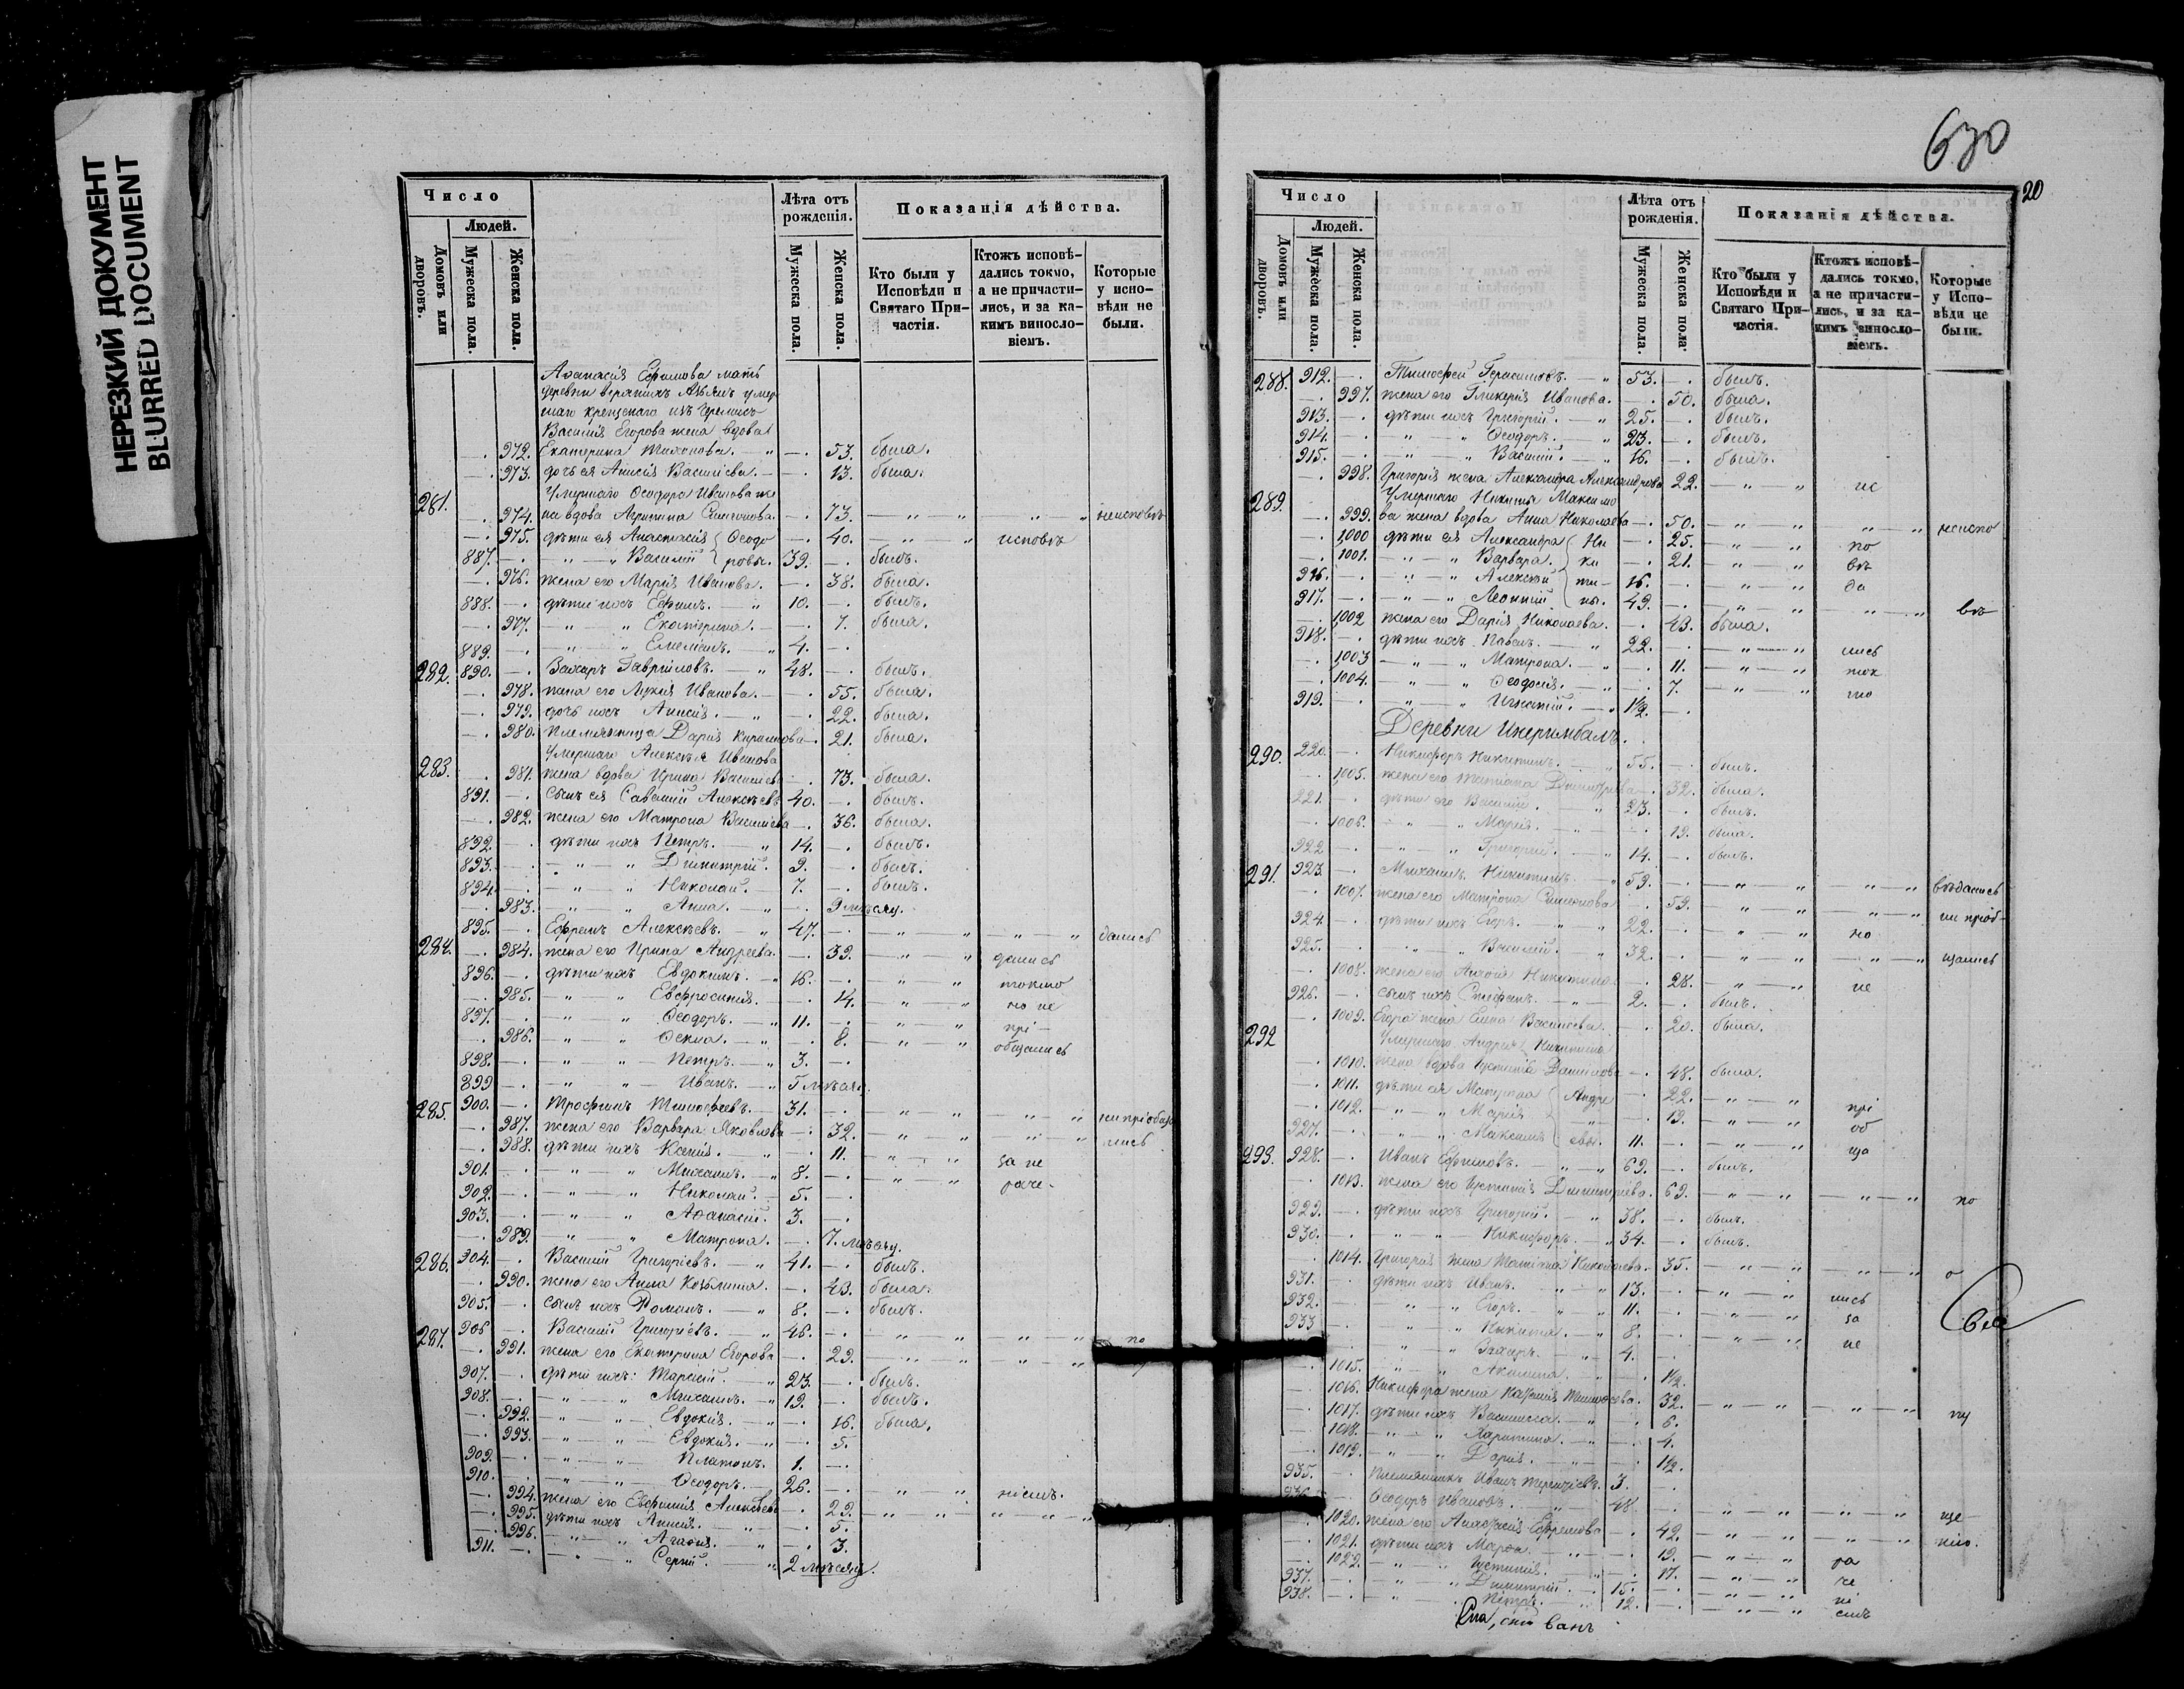 НЕРЕЗКИЙ ДОКУМЕНТ
BLURRED DOCUMENT
Число
Людей.
Домовъ или дворовъ.
Мужеска пола.
Женска пола.
Лѣта отъ рожденія.
Мужеска пола.
Женска пола.
Показанія дѣйства.
Кто были у Исповѣди и Святаго Причастія.
Ктожъ исповѣдались токмо, а не причастились, и за какимъ винословіемъ.
Которые у исповѣди не были.
Аѳанасія Ефимова мать
Василія Егорова жена вдова
972. Екатерина Тихонова. 53. была.
973. дочь ея Анисія Васильева. 13. была.
281. Умершаго Ѳеодора Иванова же
974. на вдова Агрипина Симеонова. 73.
975. дѣти ея Анастасія Ѳеодо 40.
887. Василій ровы. 39. былъ.
976. жена его Марія Иванова. 38. была.
888. дѣти ихъ Ефимъ. 10. былъ.
977. Екатерина. 7. была.
889. 4.
282. 890. Захаръ Гавриловъ. 48. былъ.
978. жена его Лукія Иванова. 55. была.
979. дочь ихъ Анисія. 22. была.
980. Племянница Дарія 21. была.
283. Умершаго Алексѣя Иванова
981. жена вдова Ирина Васильев 73. была.
891. сынъ ея Савелій Алексѣевъ 40. былъ.
982. жена его Матрона Васильева 36. была.
892. дѣти ихъ Петръ. 14. былъ.
893. Димитрій. 9. былъ.
894. Николай. 7. былъ.
983. Анна. 9 мѣсяц.
895. Ефремъ Алексѣевъ. 47. дались
284. 984. жена его Ирина Андреева. 39. дались
896. дѣти ихъ Евдокимъ. 16. токмо
985. Евфросинія. 14. но не
897. Ѳеодоръ. 11. прі-
986. Ѳекла. 8. общались
898. Петръ. 3.
899 Иванъ. 5 мѣсяц.
285. 900. Трофимъ Тимофеевъ. 31.
987. жена его Варвара Яковлева 32. лись
988. дѣти ихъ Ксенія. 11. за не
901. Михаилъ. 8. раче-
902. Николай. 5.
903. Аѳанасій. 3.
989. Матрона. 7. мѣсяц.
286. 904. Василій Григорьевъ. 41. былъ.
990. жена его Анна Козьмина. 43. была.
905. сынъ ихъ Романъ. 8. былъ.
287. 906 Василій Григорьевъ. 46. по
991. жена его Екатерина Егорова 29.
907. дѣти ихъ: 23. былъ.
908. Михаилъ. 19. былъ.
992. Евдокія. 16. была.
993. Евдокія. 5.
909. Платонъ. 1.
910. Ѳеодоръ. 26. ніемъ.
994. жена его Евфимія Алексѣева 23.
995. дѣти ихъ Анисія. 5.
996. Агаѳія. 3.
911. Сергій. 2 мѣсяц.
630
20
Число
Людей.
Домовъ или дворовъ.
Мужеска пола.
Женска пола.
Лѣта отъ рожденія.
Мужеска пола.
Женска пола.
Показанія дѣйства.
Кто были у Исповѣди и Святаго Причастія.
Ктожъ исповѣдались токмо, а не причастились, и за какимъ винословіемъ.
Которые у Исповѣди не были.
288. 912. Тимофей Герасимовъ. 53. былъ.
997. жена его Гликерія Иванова. 50. была.
913. дѣти ихъ Григорій. 25. былъ.
914. Ѳеодоръ. 23. былъ.
915. Василій. 16. былъ.
998. Григорія жена Александра Александрова 22. ис
289. Умершаго Никиты Максимо
999. ва жена вдова Анна Николаева 50. неиспо
1000 дѣти ея Александра Ни 25. по
1001. Варвара. ки 21. вѣ
916. Алексѣй ти- 16. да
917. Леонтій. ны. 49. вѣ
1002 жена его Дарія Николаева. 43. была.
918. дѣти ихъ Павелъ. 22. лись
1003 Матрона. 11. ток
1004. Ѳеодосія. 7. мо
919. Игнатій. 1½.
Деревни Инеримбалъ.
290. 220. Никифоръ Никитинъ. 55. былъ.
1005. жена его Татіана Димитріева 32. была.
221. дѣти его Василій. 23. былъ.
1006. Марія. 19. была.
922 Григорій. 14. былъ.
291. 923. Михаилъ Никитинъ. 59. вѣдались
1007. жена его Матрона Симеонова 59. ни пріоб-
924. дѣти ихъ Егоръ. 22. но
925. Василій. 32. щались
1008. жена его Никитина 28. не
926. сынъ ихъ Стефанъ. 2. былъ.
1009. Егора жена Елена Васильева. 20. была.
292 Умершаго Андрея Никитина
1010. жена вдова Іустинія Данилова 48. была.
1011. дѣти ея Матрона Андре 22. прі
1012. Марія 19. об
927. Максимъ евы. 11. ща
293. 928. Иванъ Ефимовъ. 69. былъ.
1013. жена его Іустинія Димитріева. 69. по
929. дѣти ихъ Григорій. 38. былъ.
930. Никифоръ. 34. былъ.
1014. Григорія жена Татіана Николаева. 35. о
931. дѣти ихъ Иванъ. 13. лись
932. Егоръ. 11. за
933 Никита. 8. не
Захаръ. 4.
1015. Акилина. 1½.
1016. Никифора жена Тимофеева. 32. пу
1017. дѣти ихъ Василисса. 6.
1018. Харитина. 4.
1019. Дарія. 1½.
935. Племянникъ Иванъ Терентіевъ. 3.
936. Ѳеодоръ Ивановъ. 48. ще-
1020. жена его Анастасія Ефремова 42. нію.
1021. дѣти ихъ Марѳа. 19. ра
1022. Іустинія. 17. че
937. Димитрій. 15. ні
938. Петръ. 12. емъ